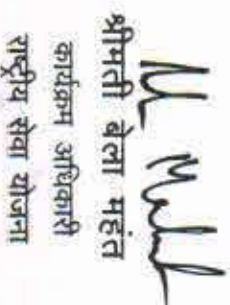 श्रीमती बेला महंत
कार्यक्रम अधिकारी
राष्ट्रीय सेवा योजना